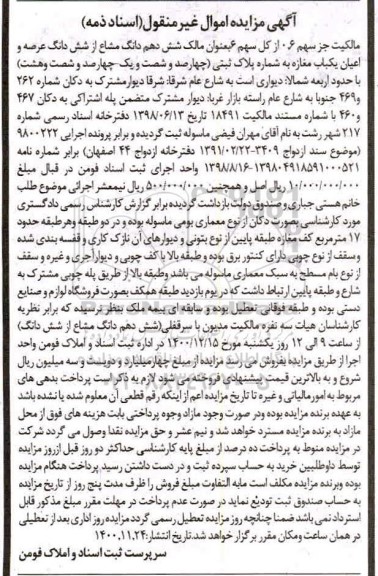 آگهی مزایده اموال غیرمنقول(اسناد ذمه)
مالکیت جز سهم ۰٫۶ از کل سهم ۶بعنوان مالک شش دهم دانگ مشاع از شش دانگ عرصه و
اعیان یکباب مغازه به شماره پلاک ثبتی (چهارصد و شصت و یک-چهارصد و شصت وهشت)
با حدود اربعه شمالا: دیواری است به شارع عام شرقا: شرقا دیوارمشترک به دکان شماره ۲۶۲
و۴۶۹ جنوبا به شارع عام راسته بازار غربا: دیوار مشترک متضمن پله اشتراکی به دکان ۴۶۷
و۴۶۰ با شماره مستند مالکیت ۱۸۴۹۱ تاریخ ۱۳۹۸/۰۶/۱۳ دفترخانه اسناد رسمی شماره
۲۱۷ شهر رشت به نام آقای مهران فیضی ماسوله ثبت گردیده و برابر پرونده اجرایی ۹۸۰۰۲۲۲
(موضوع سند ازدواج ۳۴۰۹-۱۳۹۱/۰۲/۲۲ دفترخانه ازدواج ۴۴ اصفهان) برابر شماره نامه
۱۳۹۸۰۴۹۱۸۵۹۱۰۰۰۵۲۱-۱۳۹۸/۸/۱۶ واحد اجرای ثبت اسناد فومن در قبال مبلغ
۱۰/۰۰۰/۰۰۰/۰۰۰ ریال اصل و همچنین ۵۰۰/۰۰۰/۰۰۰ ریال نیمعشر اجرائی موضوع طلب
خانم هستی جباری و صندوق دولت بازداشت گردیده برابر گزارش کارشناس رسمی دادگستری
مورد کارشناسی بصورت دکان از نوع معماری بومی ماسوله بوده و در دو طبقه وهرطبقه حدود
۱۷ مترمربع کف مغازه طبقه پایین از نوع بتونی و دیوارهای آن نازک کاری و قفسه بندی شده
و سقف از نوع چوبی دارای کنتور برق بوده و طبقه بالا با کف چوبی و دیوارآجری و غیره و سقف
از نوع بام مسطح به سبک معماری ماسوله می باشد وطبقه بالا از طریق پله چوبی مشترک به
شارع و طبقه پایین ارتباط داشت که در یوم بازدید طبقه همکف بصورت فروشگاه لوازم و صنایع
دستی بوده و طبقه فوقانی تعطیل بوده و سابقه ای بیمه ملک بنظر نرسیده که برابر نظریه
کارشناسان هیات سه نفره مالکیت مدیون با سرقفلی(شش دهم دانگ مشاع از شش دانگ)
از ساعت ۹ الی ۱۲ روز یکشنبه مورخ ۱۴۰۰/۱۲/۱۵ در اداره ثبت اسناد و املاک فومن واحد
اجرا از طریق مزایده بفروش می رسد مزایده از مبلغ چهارمیلیارد و دویست و سه میلیون ریال
شروع و به بالاترین قیمت پیشنهادی فروخته می شود لازم به ذکر است پرداخت بدهی های
مربوط به امورمالیاتی و غیره تا تاریخ مزایده اعم از اینکه رقم قطعی آن معلوم شده یا نشده باشد
به عهده برنده مزایده بوده ودر صورت وجود مازاد وجوه پرداختی بابت هزینه های فوق از محل
مازاد به برنده مزایده مسترد خواهد شد و نیم عشر و حق مزایده نقدا وصول می گردد شرکت
در مزایده منوط به پرداخت ده درصد از مبلغ پایه کارشناسی حداکثر دو روز قبل ازروز مزایده
توسط داوطلبین خرید به حساب سپرده ثبت و در دست داشتن رسید.پرداخت هنگام مزایده
بوده وبرنده مزایده مکلف است مابه التفاوت مبلغ فروش را ظرف مدت پنج روز از تاریخ مزایده
به حساب صندوق ثبت تودیع نماید در صورت عدم پرداخت در مهلت مقرر مبلغ مذکور قابل
استرداد نمی باشد ضمنا چنانچه روز مزایده تعطیل رسمی گردد مزایده روز اداری بعد از تعطیلی
در همان ساعت ومکان مقرر برگزار خواهد شد.تاریخ انتشار:۱۴۰۰.۱۱.۲۴
سرپرست ثبت اسناد و املاک فومن